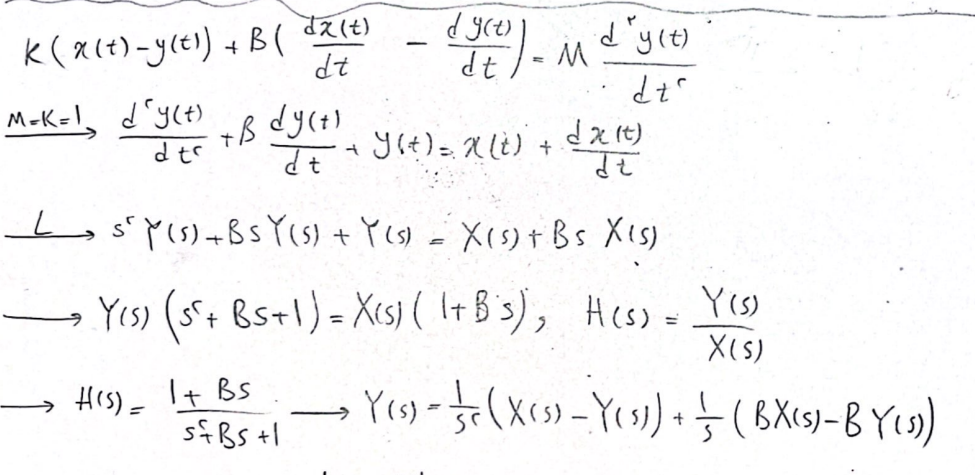 K(x(t)-y(t)) + B(dx(t)/dt - dy(t)/dt) = M d²y(t)/dt²
M=K=1 → d²y(t)/dt² + B dy(t)/dt + y(t) = x(t) + dx(t)/dt
L → s²Y(s) + BsY(s) + Y(s) = X(s) + Bs X(s)
→ Y(s) (s² + Bs+1) = X(s) (1+Bs), H(s) = Y(s)/X(s)
→ H(s) = (1+Bs)/(s²+Bs+1) → Y(s) = 1/s² (X(s) - Y(s)) + 1/s (BX(s)-BY(s))